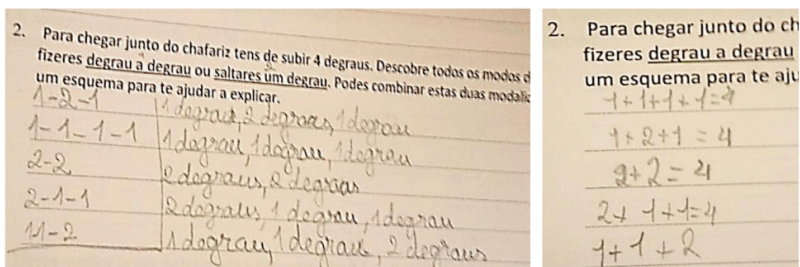 2. Para chegar junto do chafariz tens de subir 4 degraus. Descobre todos os modos d
fizeres degrau a degrau ou saltares um degrau. Podes combinar estas duas modalid
um esquema para te ajudar a explicar.
1-2-1 1 degrau, 2 degraus, 1 degrau
1-1-1-1 1 degrau, 1 degrau, 1 degrau
2-2 2 degraus, 2 degraus
2-1-1 2 degraus, 1 degrau, 1 degrau
11-2 1 degrau, 1 degrau, 2 degraus
2. Para chegar junto do ch
fizeres degrau a degrau
um esquema para te aju
1+1+1+1=4
1+2+1=4
2+2=4
2+1+1=4
1+1+2